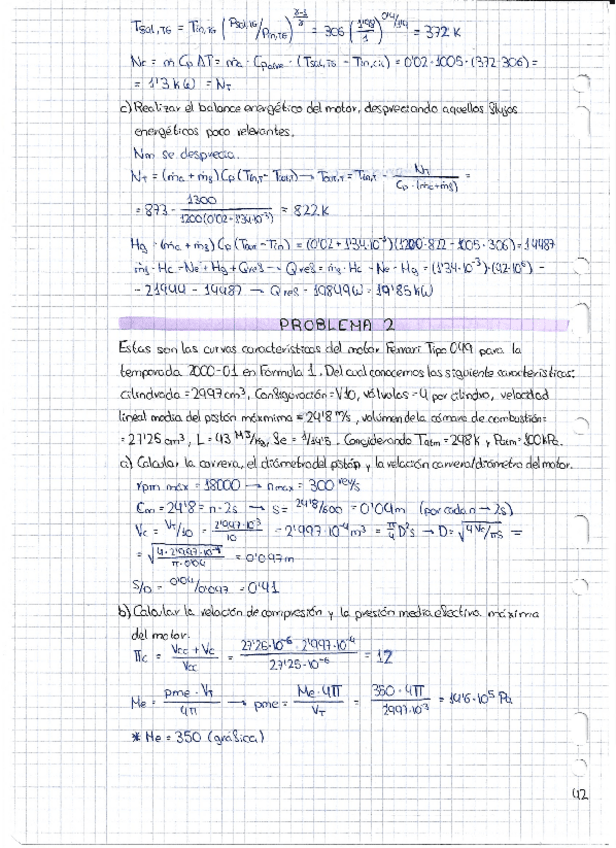 Tsal,TG = Tin,TG (Psal,TG/Pin,TG)^(γ-1/γ) = 306 (1'98/1)^(0'4/1'4) = 372 K
Ne = ṁ Cp ΔT = ṁa · Cpaire · (Tsal,TG - Tin,TG) = 0'02 · 1005 · (372 - 306) =
= 1'3 kW = NT
c) Realizar el balance energético del motor, despreciando aquellos flujos
energéticos poco relevantes.
Nm se desprecia.
NT = (ṁa + ṁf) Cp (Tin,T - Tout,T) → Tout,T = Tin,T - NT / Cp · (ṁa+ṁf) =
= 873 - 1300 / 1200(0'02 + 1'34·10⁻³) = 822 K
Hg = (ṁa + ṁf) Cp (Tout - Tin) = (0'02 + 1'34·10⁻³)(1200·822 - 1005·306) = 14487
ṁf · Hc = Ne + Hg + Qref → Qref = ṁf · Hc - Ne - Hg = (1'34·10⁻³)·(42·10⁶) -
- 21944 - 14487 → Qref = 19849 W = 19'85 kW
PROBLEMA 2
Estas son las curvas características del motor Ferrari Tipo 049 para la
temporada 2000-01 en Fórmula 1. Del cual conocemos las siguiente características:
cilindrada = 2997 cm³, Configuración = V10, válvulas = 4 por cilindro, velocidad
lineal media del pistón máxmima = 24'8 m/s, volúmen de la cámara de combustión =
= 27'25 cm³, L = 43 MJ/kg, Fe = 1/14'5. Considerando Tatm = 298K y Patm = 100kPa.
a) Calcular la carrera, el diámetro del pistón y la relación carrera/diámetro del motor.
rpm máx = 18000 → nmax = 300 rev/s
Cm = 24'8 = n · 2s → s = 24'8/600 = 0'04 m (por cada n → 2s)
Vc = VT/10 = 2'997·10⁻³ / 10 = 2'997·10⁻⁴ m³ = π/4 D²s → D = √(4Vc/πs) =
= √(4 · 2'997·10⁻⁴ / π · 0'04) = 0'097m
S/D = 0'04/0'097 = 0'41
b) Calcular la relación de compresión y la presión media efectiva máxima
del motor.
πc = Vcc + Vc / Vcc = 27'25·10⁻⁶ + 2'997·10⁻⁴ / 27'25·10⁻⁶ = 12
Me = pme · VT / 4π → pme = Me · 4π / VT = 350 · 4π / 2997·10³ = 14'6 · 10⁵ Pa
* Me = 350 (gráfica)
42